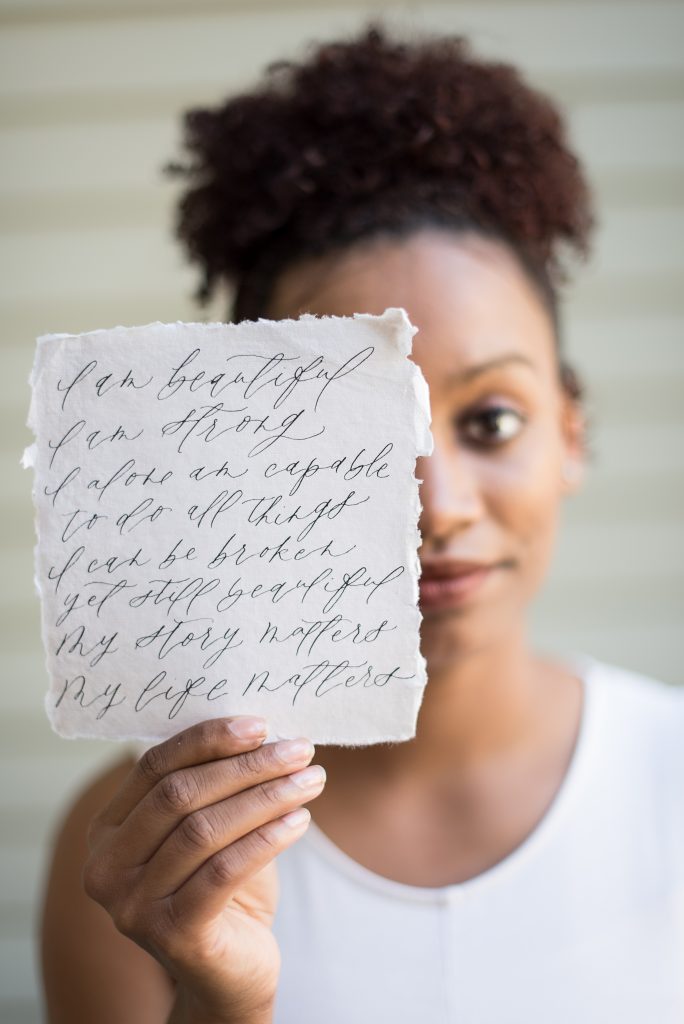 I am beautiful
I am strong
I alone am capable
to do all things
I can be broken
yet still beautiful
My story matters
My life matters